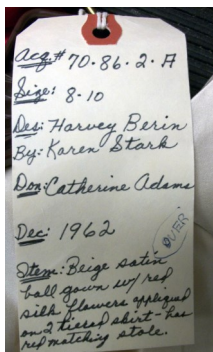 Acq.# 70.86.2.A
Size: 8-10
Des: Harvey Berin
By: Karen Stark
Don: Catherine Adams
Dec: 1962
OVER
Item: Beige satin
ball gown w/ red
silk flowers appliqued
on 2 tiered skirt - has
red matching stole.